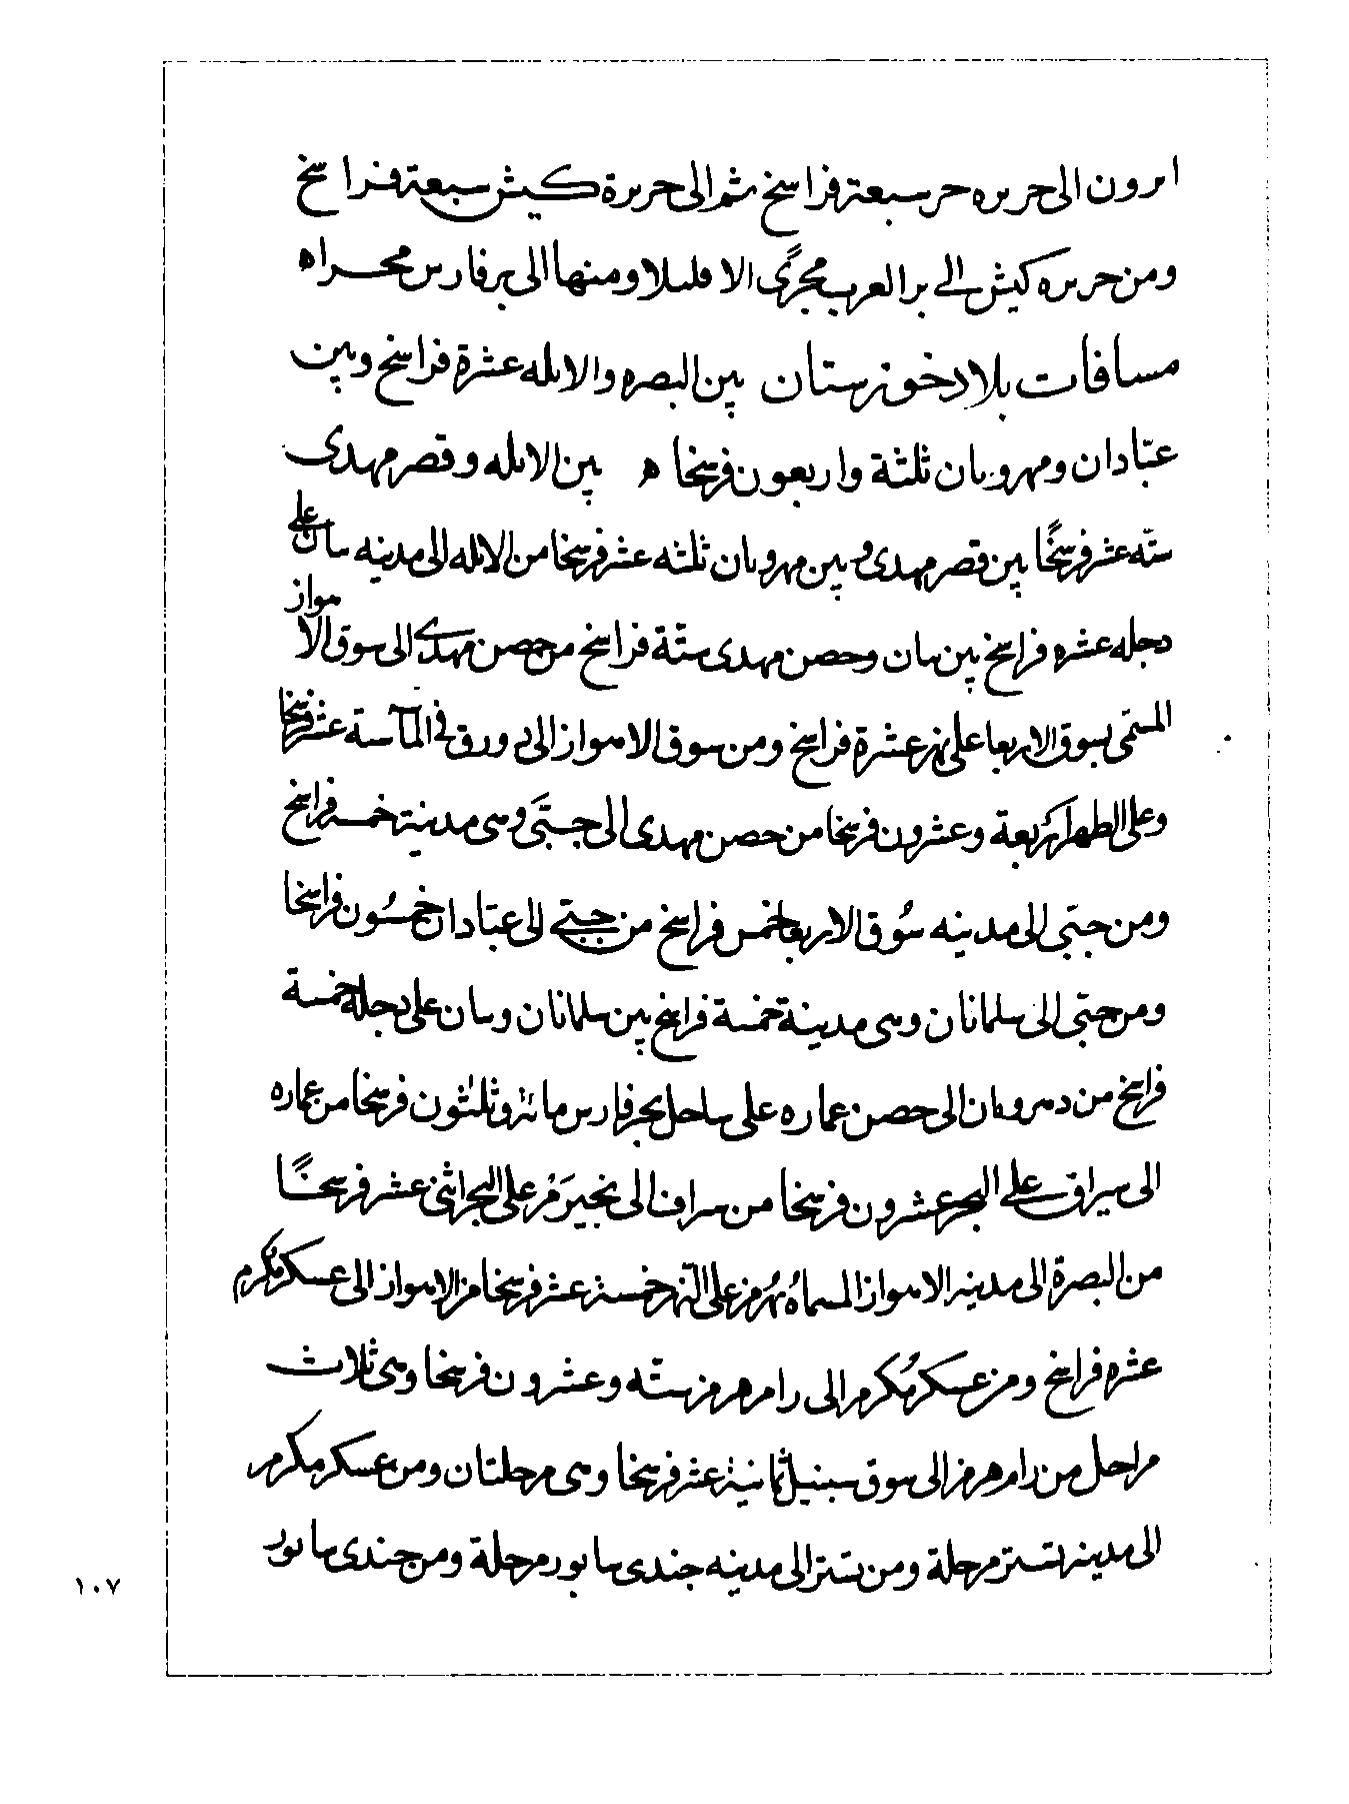 ابرون الى جزيره جز سبعة فراسخ ثم الى جزيرة كيش سبعة فراسخ
ومن جزيره كيش الى بر العرب مجرًى الا قليلا ومنها الى بر فارس مجراه
مسافات بلاد خوزستان بين البصره والابله عشرة فراسخ وبين
عبّادان ومهروبان ثلثة واربعون فرسخا ه بين الابله وقصر مهدى
ستّه عشر فرسخًا بين قصر مهدى وبين مهروبان ثلثه عشر فرسخا من الابله الى مدينه بيان على
دجله عشره فراسخ بين بيان وحصن مهدى ستّة فراسخ من حصن مهدى الى سوق الاهواز
المسمّى بسوق الاربعا على نهر عشرة فراسخ ومن سوق الاهواز الى دورق فى الماء ستة عشر فرسخا
وعلى الظهر اربعة وعشرون فرسخا من حصن مهدى الى جبّى وهى مدينة خمسة فراسخ
ومن جبّى الى مدينه سُوق الاربعا خمس فراسخ من جبّى الى عبّادان خمسُون فراسخا
ومن جبّى الى سلمانان وهى مدينة خمسة فراسخ بين سلمانان وبيان على دجلة خمسة
فراسخ من مهروبان الى حصن عماره على ساحل بحر فارس مائة وثلثون فرسخا من عماره
الى سيراف على البحر عشرون فرسخا من سيراف الى نجيرَمْ على البحر اثنى عشر فرسخًا
من البصرة الى مدينه الاهواز المسماه نهُرمز على النّهر خمسة عشر فرسخا من الاهواز الى عسكر مُكرم
عشره فراسخ ومن عسكر مُكرم الى رامهرمز ستّه وعشرون فرسخا وهى ثلاث
مراحل من رامهرمز الى سوق سنبيل ثمانية عشر فرسخا وهى مرحلتان ومن عسكر مكرم
الى مدينة تستر مرحلة ومن تستر الى مدينه جندى سابور مرحلة ومن جندى سابور
١٠٧